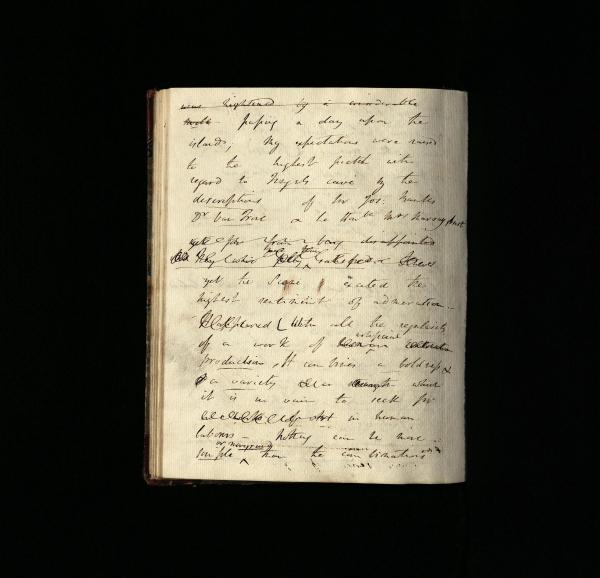 was heightened by a considerable
Passing a day upon the
islands, My expectations were raised
to the highest pitch with
regard to Fingals cave by the
descriptions of Sir Jos. Banks
Dr Van Troil & la Honble Mrs Murray Aust
yet far from being disappointed
They were fully gratified &
yet the Scene excited the
highest sentiment of admiration. -
With all the regularity
of a work of artificial
production, It combines a boldness &
a variety which
it is in vain to seek for
in human
labours - Nothing can be more
simple or more grand than the combinations